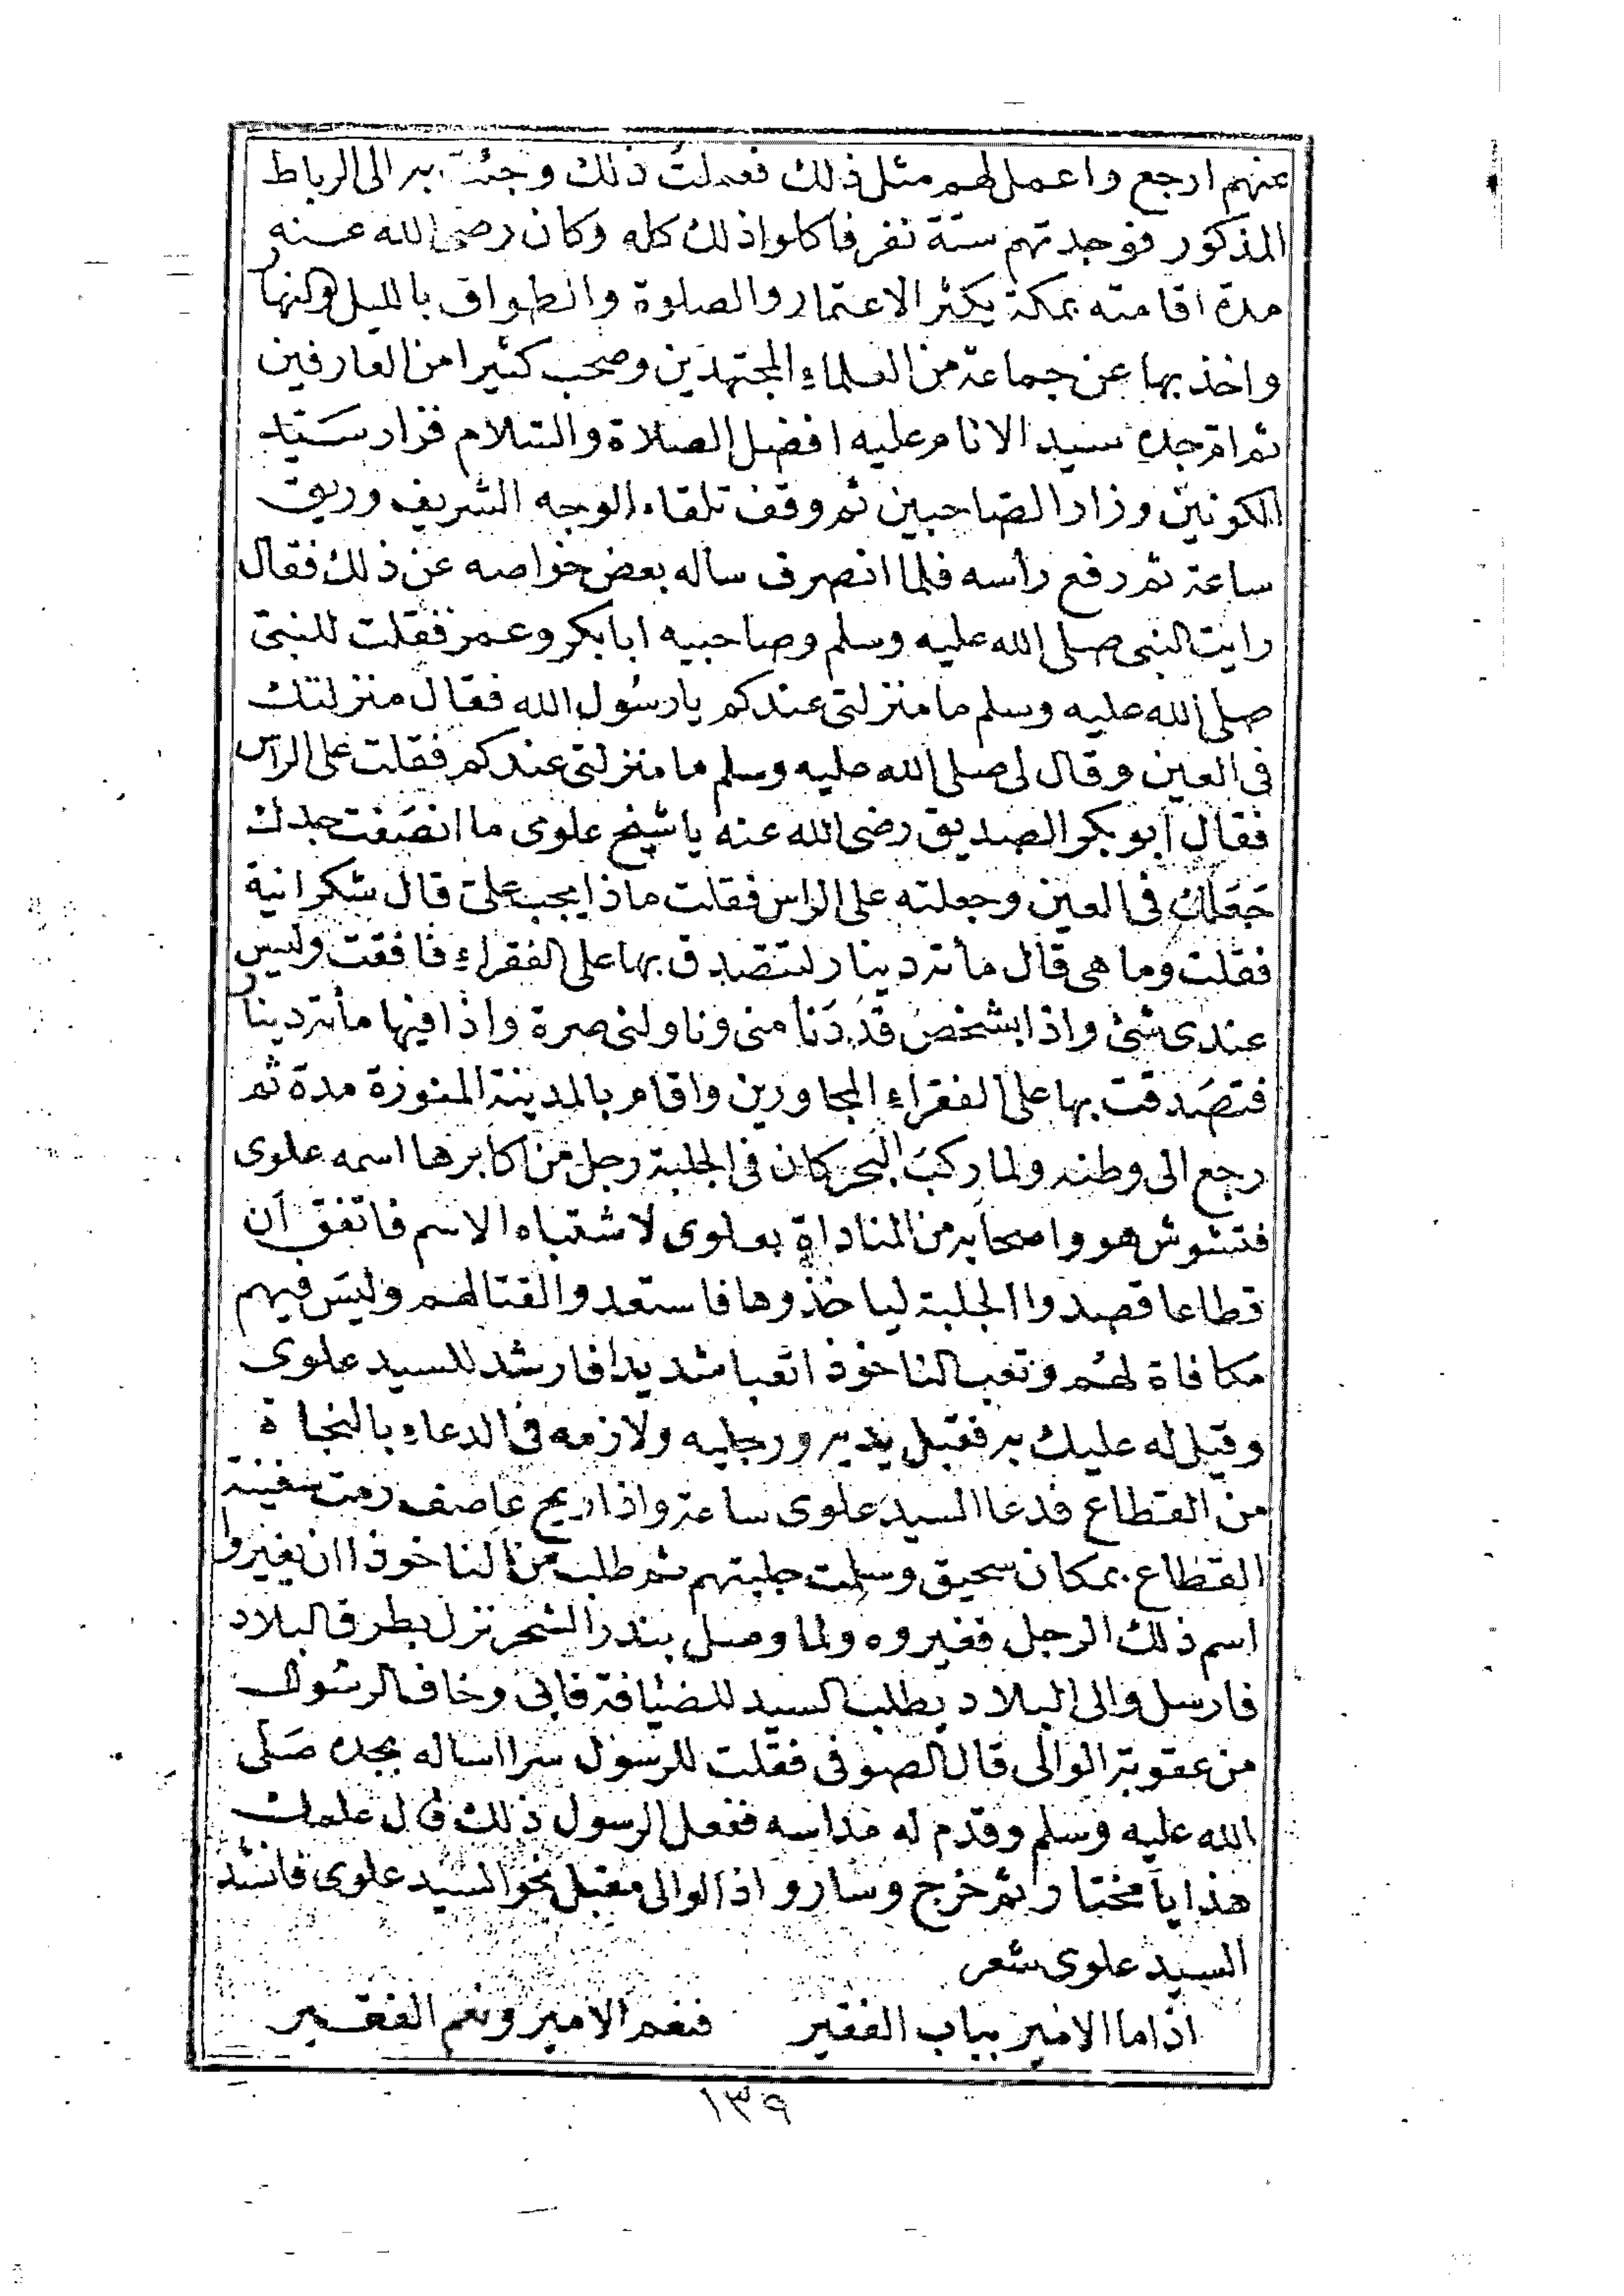 عنهم ارجع واعمل لهم مثل ذلك ففعلت ذلك وجئت به الى الرباط
المذكور فوجدتهم ستة نفر فاكلوا ذلك كله وكان رضى الله عنه
مدة اقامته بمكة يكثر الاعتمار والصلوة والطواف بالليل والنهار
واخذ بها عن جماعة من العلماء المجتهدين وصحب كثيرا من العارفين
ثم ام جده سيد الانام عليه افضل الصلاة والسلام فزار سيد
الكونين وزار الصاحبين ثم وقف تلقاء الوجه الشريف
ساعة ثم رفع رأسه فلما انصرف ساله بعض خواصه عن ذلك فقال
رايت النبى صلى الله عليه وسلم وصاحبيه ابا بكر وعمر فقلت للنبى
صلى الله عليه وسلم ما منزلتى عندكم يا رسول الله فقال منزلتك
فى العين وقال لى صلى الله عليه وسلم ما منزلتى عندكم فقلت على الراس
فقال ابو بكر الصديق رضى الله عنه يا شيخ علوى ما انصفت جدك
جعلك فى العين وجعلته على الراس فقلت ماذا يجب على قال شكرانية
فقلت وما هى قال مأتة دينار لتتصدق بها على الفقراء فافقت وليس
عندى شئ واذا بشخص قد دنا منى وناولنى صرة واذا فيها مأتة دينار
فتصدقت بها على الفقراء المجاورين واقام بالمدينة المنورة مدة ثم
رجع الى وطنه ولما ركب البحر كان فى الجلبة رجل من اكابرها اسمه علوى
فتشوش هو واصحابه من المناداة بعلوى لاشتباه الاسم فاتفق ان
قطاعا قصدوا الجلبة لياخذوها فاستعدوا لقتالهم وليس فيهم
مكافاة لهم وتعب الناخوذا تعبا شديدا فارشد للسيد علوى
وقيل له عليك به فقبل يديه ورجليه ولازمه فى الدعاء بالنجاة
من القطاع فدعا السيد علوى ساعة واذا ريح عاصف رمت سفينة
القطاع بمكان سحيق وسلمت جلبتهم ثم طلب من الناخوذا ان يغيروا
اسم ذلك الرجل فغيروه ولما وصل بندر الشحر نزل بطرف البلاد
فارسل والى البلاد يطلب السيد للضيافة فابى وخاف الرسول
من عقوبة الوالى قال الصوفى فقلت للرسول سرا اساله بجده صلى
الله عليه وسلم وقدم له مداسه ففعل الرسول ذلك قال علمك
هذا يا مختار ثم خرج وسار واذا الوالى مقبل نحو السيد علوى فانشد
السيد علوى شعر
اذا ما الامير بباب الفقير فنعم الامير ونعم الفقير
١٣٩